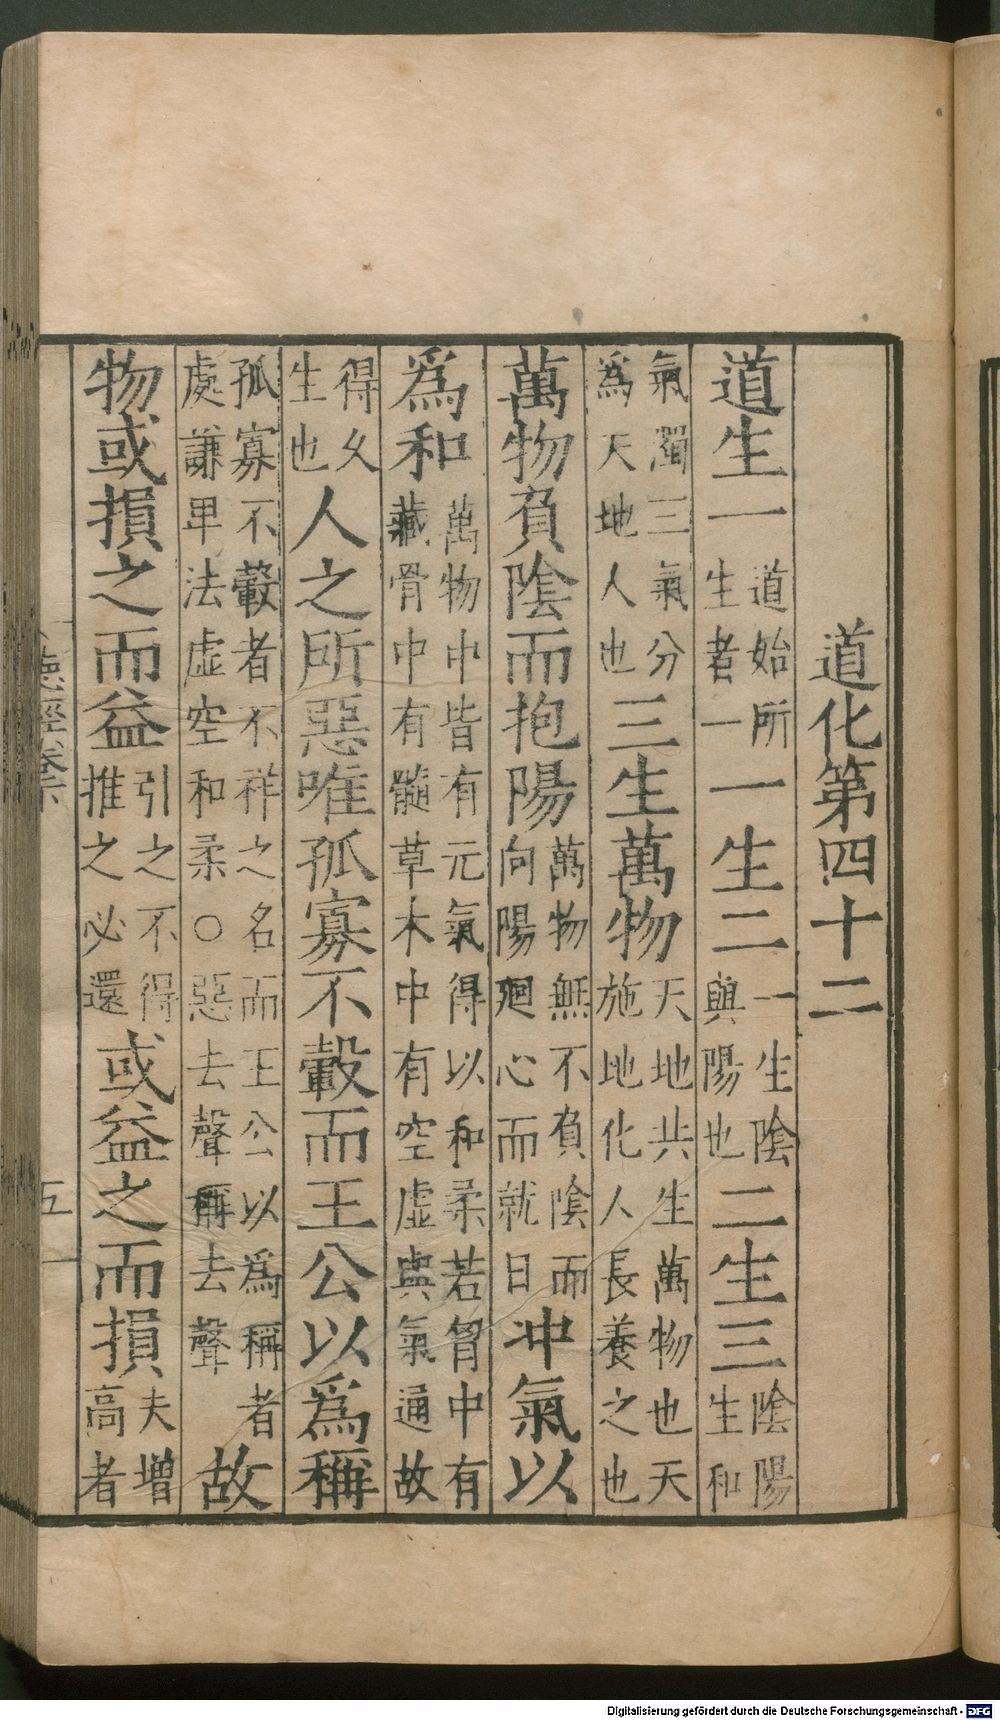 道化第四十二
道生一道始所生者一一生二一生陰與陽也二生三陰陽生和
氣濁三氣分為天地人也三生萬物天地共生萬物也天施地化人長養之也
萬物負陰而抱陽萬物無不負陰而向陽廻心而就日冲氣以
爲和萬物中皆有元氣得以和柔若胷中有藏骨中有髓草木中有空虛與氣通故
得久生也人之所惡唯孤寡不轂而王公以爲稱
孤寡不轂者不祥之名而王公以爲稱者處謙卑法虛空和柔○惡去聲稱去聲故
物或損之而益引之不得推之必還或益之而損夫增高者
德經卷下 五
Digitalisierung gefördert durch die Deutsche Forschungsgemeinschaft - DFG